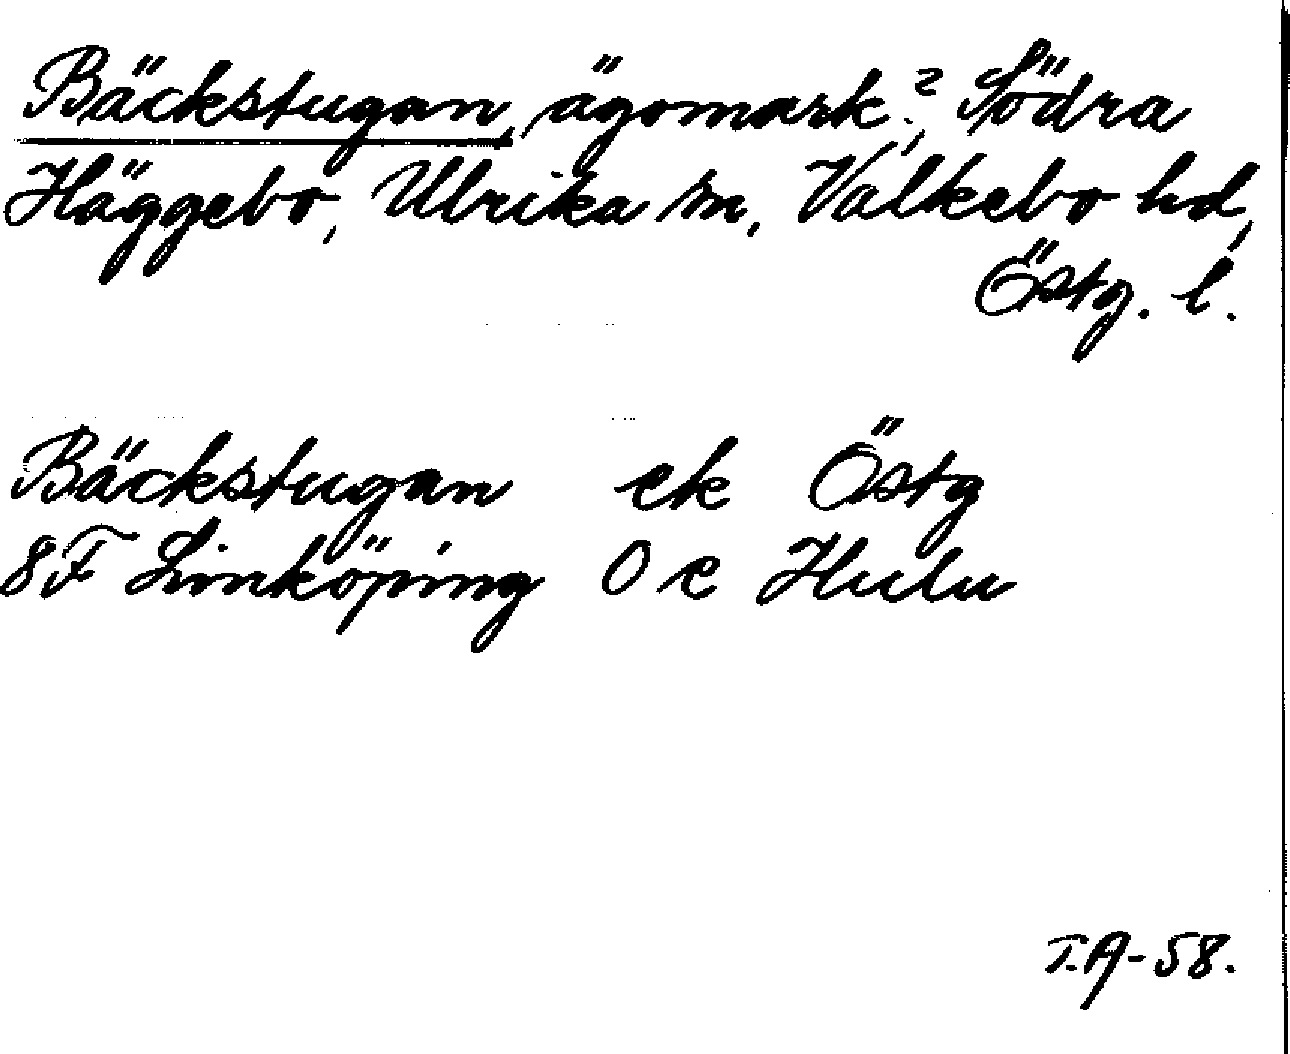 Bäckstugan, ägomark?, Södra
Häggebo, Ulrika sn, Valkebo hd,
Östg. l.
Bäckstugan ek Östg
8F Linköping 0 e Hulu
T.A-58.